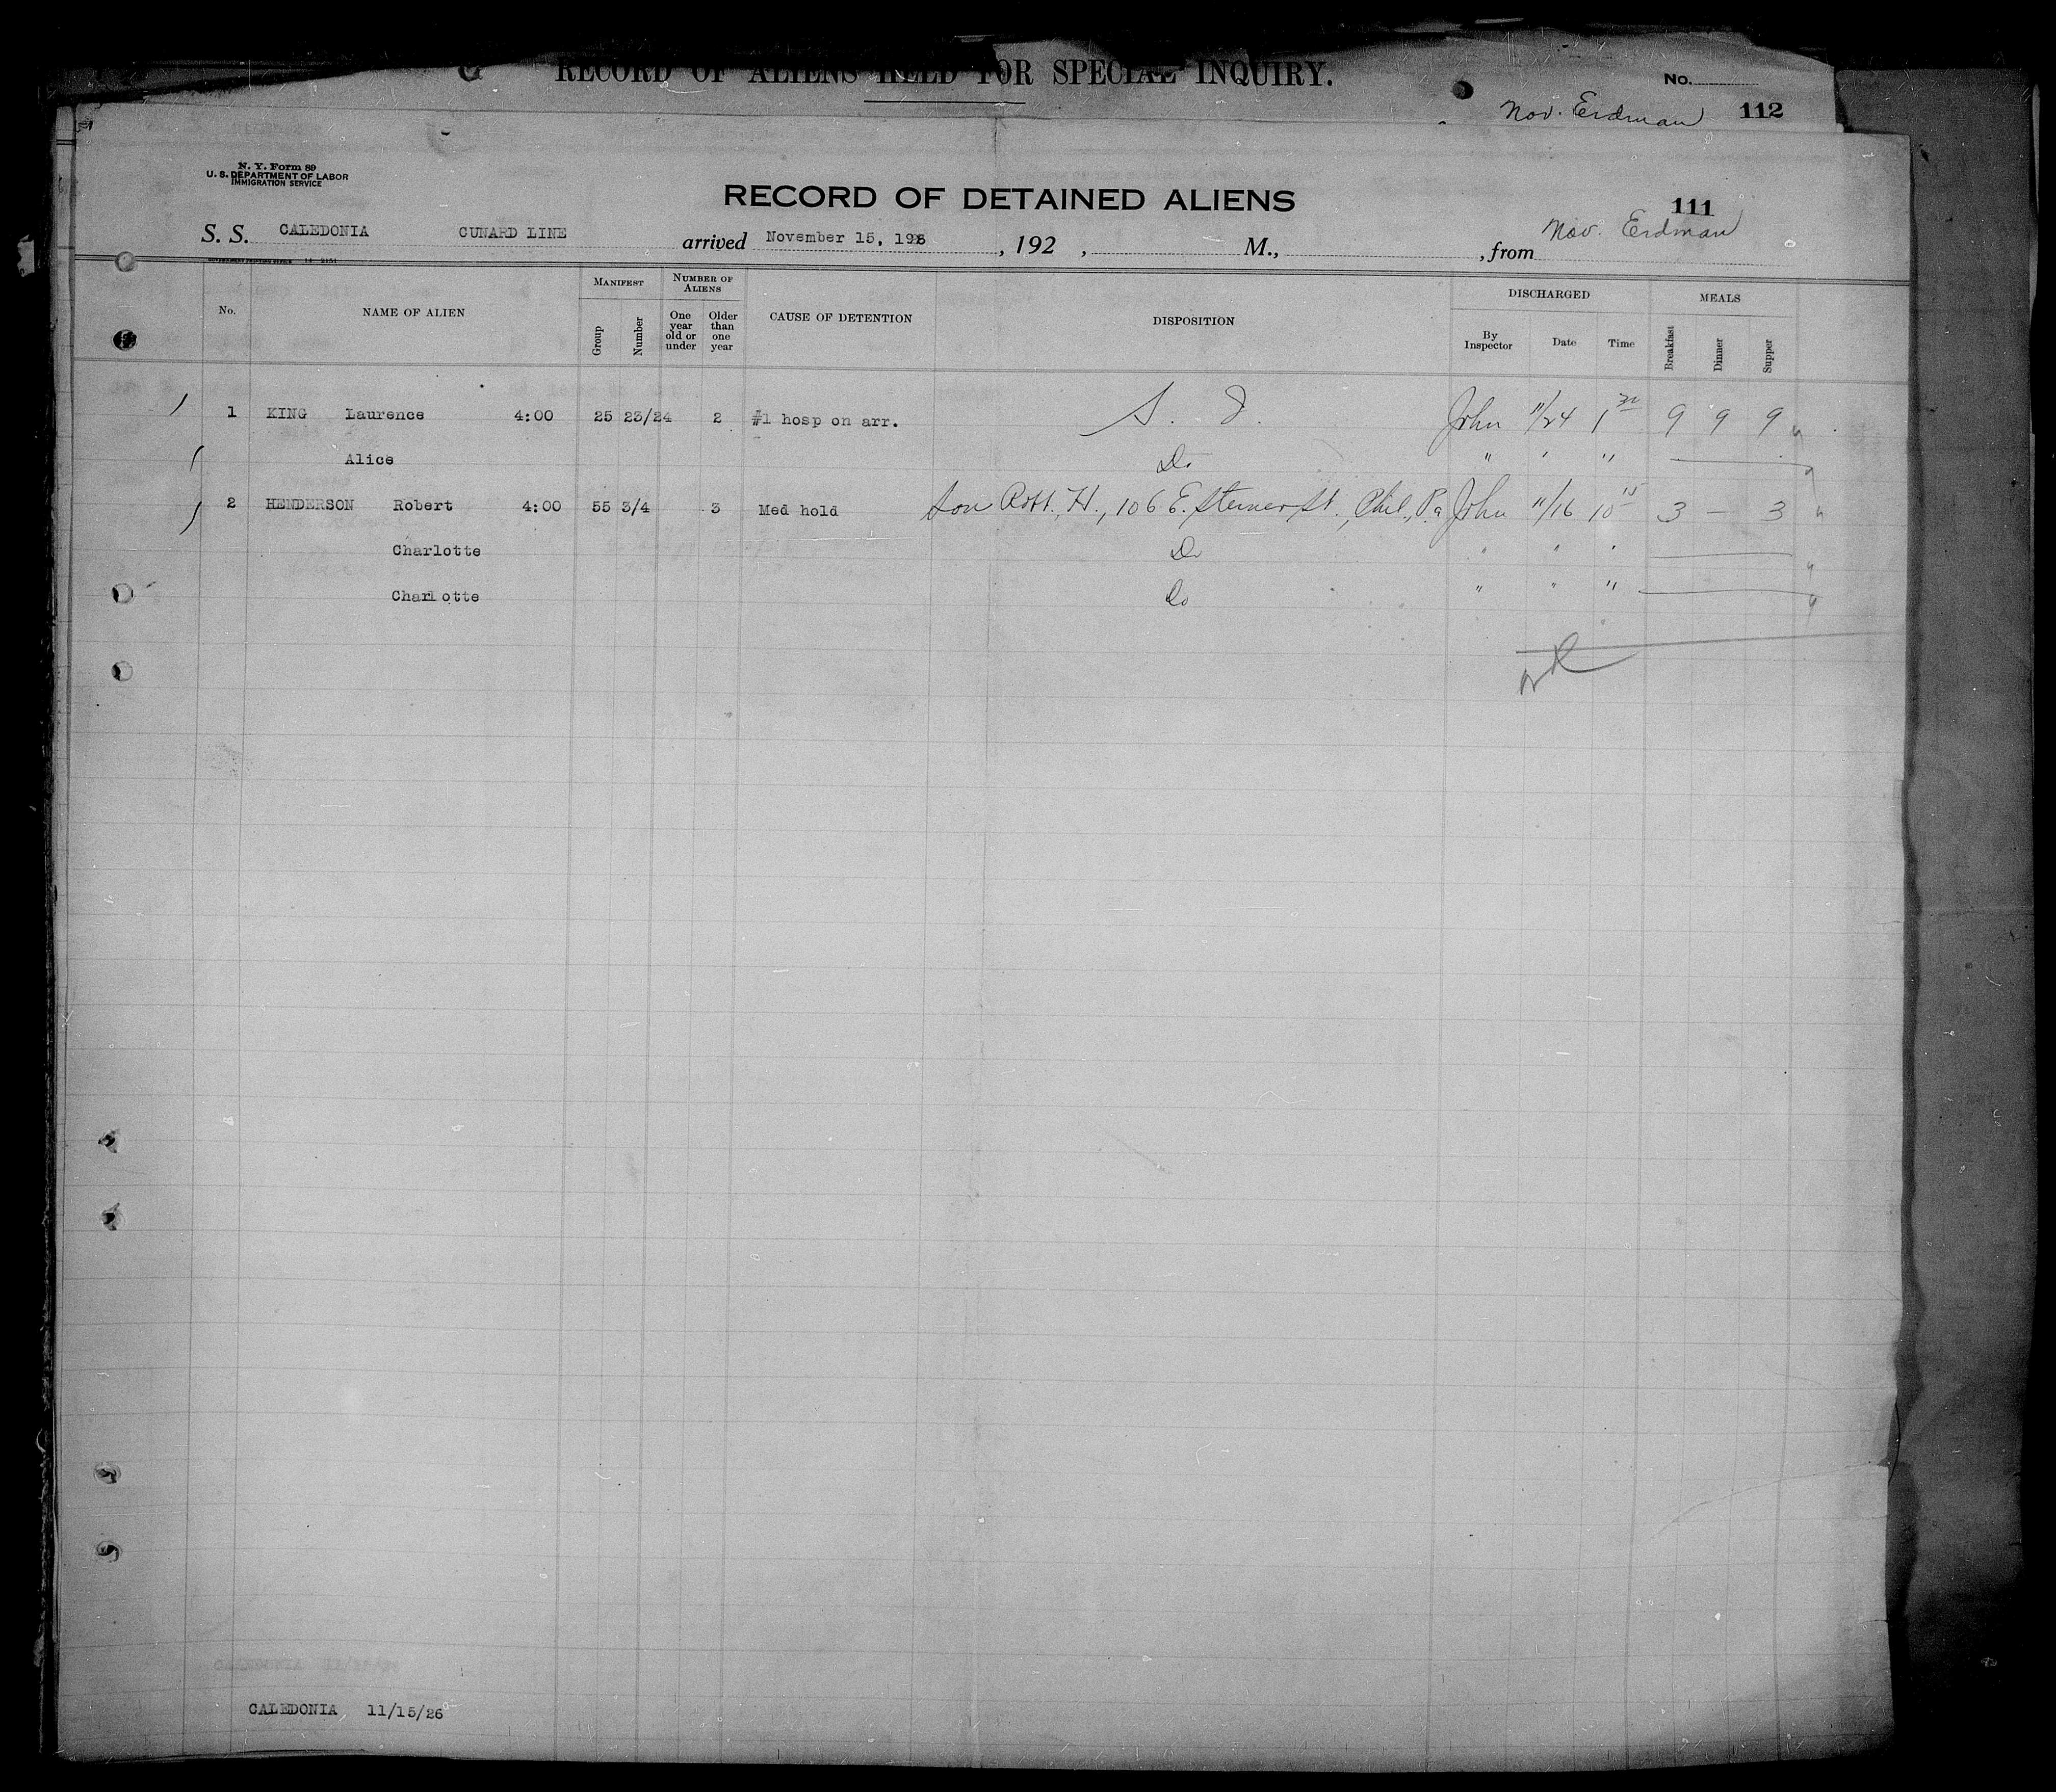 RECORD OF ALIENS HELD FOR SPECIAL INQUIRY.
No.
Nov. Erdman 112
N. Y. Form 89
U. S. DEPARTMENT OF LABOR
IMMIGRATION SERVICE
RECORD OF DETAINED ALIENS
111
S. S. CALEDONIA CUNARD LINE arrived November 15, 1926, 192 , M., , from Nov. Erdman
No. NAME OF ALIEN MANIFEST Group Number NUMBER OF ALIENS One year old or under Older than one year CAUSE OF DETENTION DISPOSITION DISCHARGED By Inspector Date Time MEALS Breakfast Dinner Supper
1 KING Laurence 4:00 25 23/24 2 #1 hosp on arr. S. I. John 11/24 1 30 9 9 9
Alice Do " " "
2 HENDERSON Robert 4:00 55 3/4 3 Med hold Son Robt. H., 106 E. Sterner St., Phil., Pa John 11/16 10 15 3 — 3
Charlotte Do " " "
Charlotte Do " " "
CALEDONIA 11/15/26